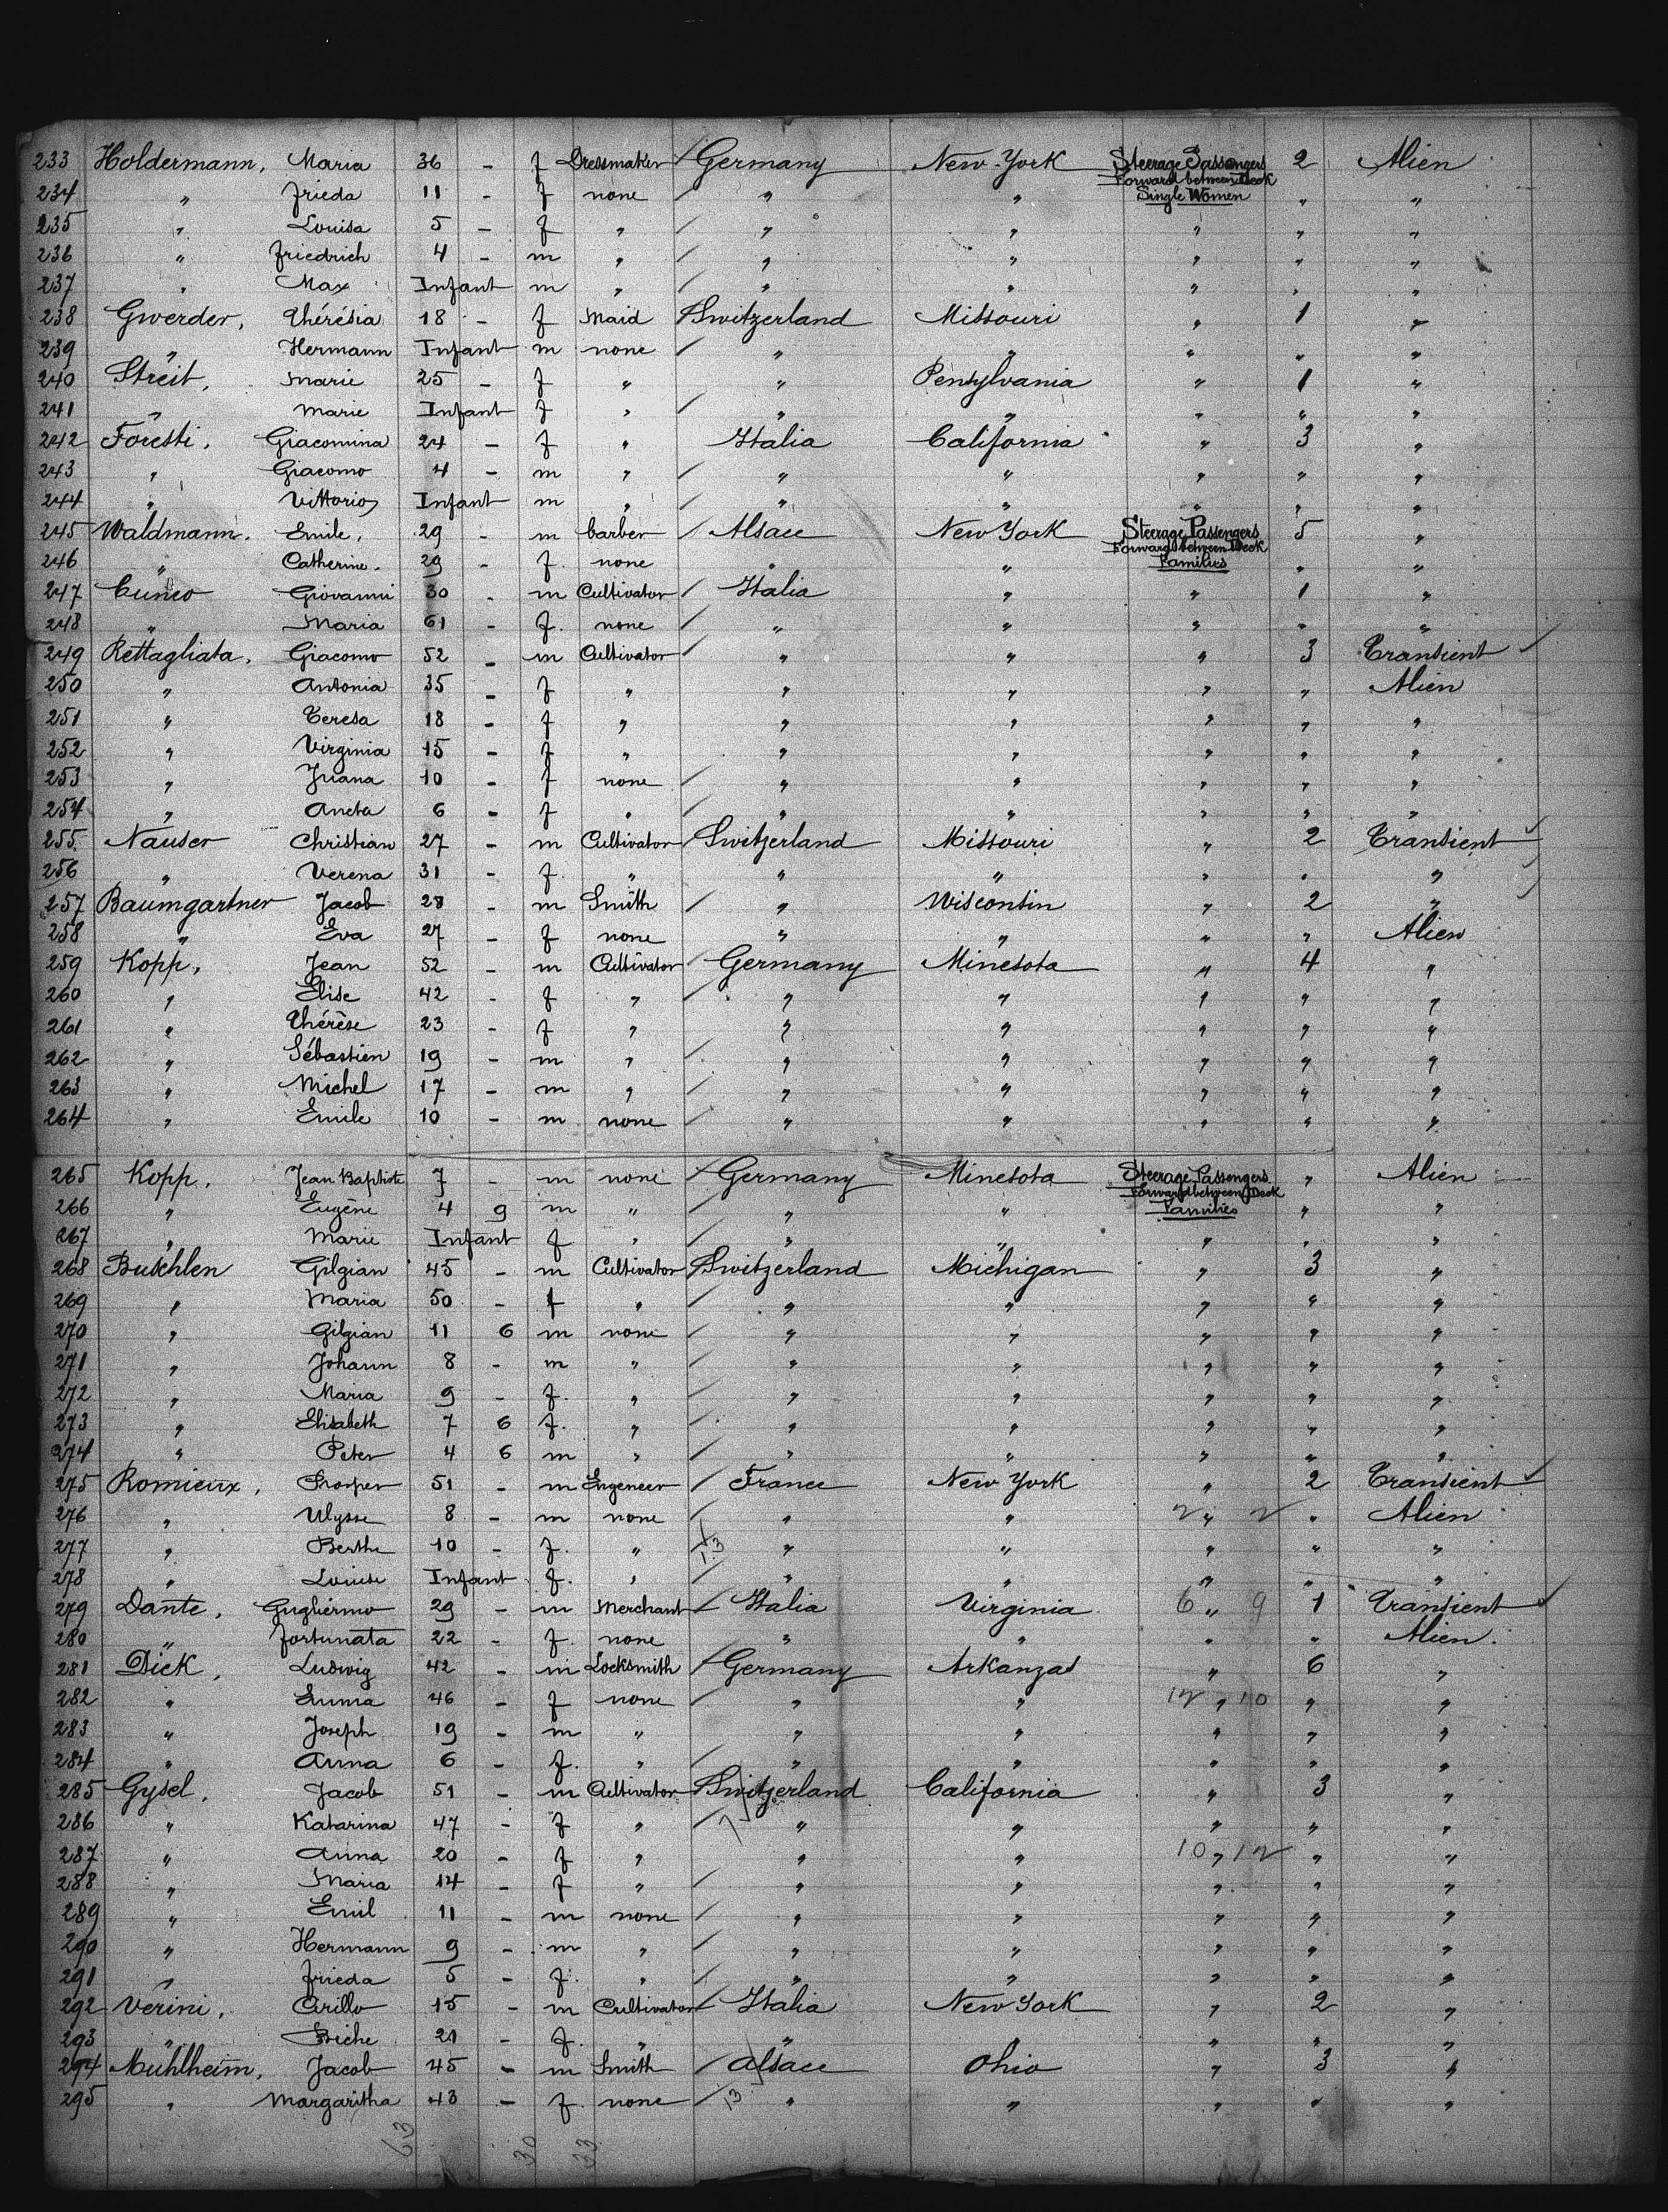 233 Holdermann, Maria 36 - f Dressmaker / Germany New-York Steerage Passengers Forward between Deck Single Women 2 Alien
234 " Frieda 11 - f none / " " " "
235 " Louisa 5 - f " / " " " " "
236 " Friedrich 4 - m " / " " " " "
237 " Max Infant m " / " " " " "
238 Gwerder, Thérésia 18 - f Maid / Switzerland Missouri " 1 "
239 " Hermann Infant m none / " " " " "
240 Streit, Marie 25 - f " " Pensylvania " 1 "
241 " Marie Infant f " / " " " " "
242 Foresti, Giacomina 24 - f " Italia California " 3 "
243 " Giacomo 4 - m " / " " " " "
244 " Vittorio Infant m " / " " " " "
245 Waldmann, Emile, 29 - m barber / Alsace New York Steerage Passengers Forward between Deck Families 5 "
246 " Catherine. 29 - f. none " " " "
247 Cuneo Giovanni 30 - m Cultivator / Italia " " 1 "
248 " Maria 61 - f. none / " " " " "
249 Rettagliata, Giacomo 52 - m Cultivator / " " " 3 Transient ✓
250 " Antonia 35 - f " " " " " Alien
251 " Teresa 18 - f " " " " " "
252 " Virginia 15 - f " " " " " "
253 " Juana 10 - f none / " " " " "
254 " Aneta 6 - f " / " " " " "
255. Nauser Christian 27 - m Cultivator / Switzerland Missouri " 2 Transient ✓
256 " Verena 31 - f. " " " " " "
257 Baumgartner Jacob 28 - m Smith / " Wisconsin " 2 "
258 " Eva 27 - f none " " " " Alien
259 Kopp, Jean 52 - m Cultivator / Germany Minesota " 4 "
260 " Elise 42 - f " / " " " " "
261 " Thérèse 23 - f " / " " " " "
262 " Sébastien 19 - m " / " " " " "
263 " Michel 17 - m " / " " " " "
264 " Emile 10 - m none / " " " " "
265 Kopp, Jean Baptiste 7 - m none / Germany Minesota Steerage Passengers Forward between Deck Families " Alien
266 " Eugène 4 9 m " / " " " "
267 " Marie Infant f " / " " " " "
268 Buschlen Gilgian 45 - m Cultivator / Switzerland Michigan " 3 "
269 " Maria 50 - f " / " " " " "
270 " Gilgian 11 6 m none / " " " " "
271 " Johann 8 - m " / " " " " "
272 " Maria 9 - f. " / " " " " "
273 " Elisabeth 7 6 f. " / " " " " "
274 " Peter 4 6 m " / " " " " "
275 Romieux, Prosper 51 - m Engeneer / France New York " 2 Transient ✓
276 " Ulysse 8 - m none / " " " " Alien
277 " Berthe 10 - f. " 13 " " " " "
278 " Louise Infant f. " / " " " " "
279 Dante, Gugliermo 29 - m Merchant / Italia Virginia 6 " 9 1 Transient ✓
280 " Fortunata 22 - f. none " " " " Alien.
281 Dick, Ludwig 42 - m Locksmith / Germany Arkanzas " 6 "
282 " Emma 46 - f none / " " 12 " 10 " "
283 " Joseph 19 - m " " " " " "
284 " Anna 6 - f. " / " " " " "
285 Gysel, Jacob 51 - m Cultivator / Switzerland California " 3 "
286 " Katarina 47 - f " / " " " " "
287 " Anna 20 - f " " " 10 " 12 " "
288 " Maria 14 - f " / " " " " "
289 " Emil 11 - m none / " " " " "
290 " Hermann 9 - m " / " " " " "
291 " Frieda 5 - f. " / " " " " "
292 Verini, Cirillo 15 - m Cultivator / Italia New York " 2 "
293 " 21 - f. " " " " " "
294 Muhlheim, Jacob 45 - m Smith / Alsace Ohio " 3 "
295 " Margaritha 43 - f. none / 13 " " " " "
63 30 33